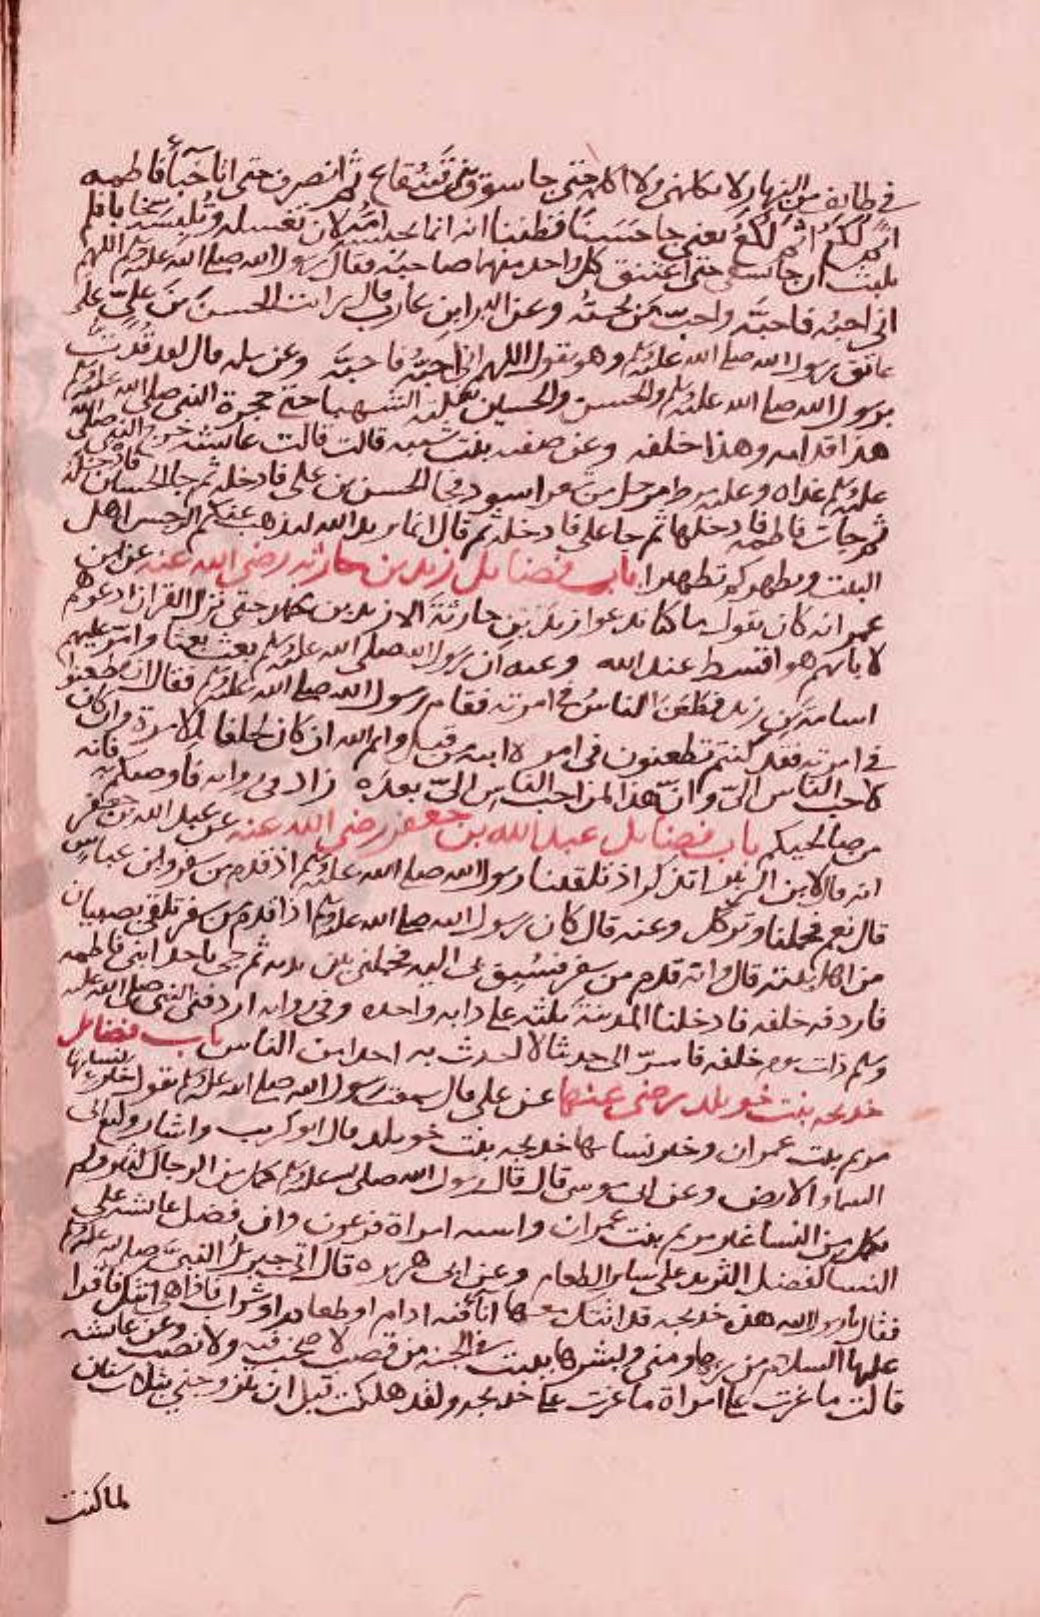 في طائفة من النهار لا يكلمني ولا اكلمه حتى جا سوق بني قينقاع ثم انصرف حتى اتا خبأ فاطمه
اثم لكع اثم لكع يعني حسنا فظننا انه انما تحبسه امه لان تغسله وتلبسه سخابا فلم
يلبث ان جا يسعى حتى اعتنق كل واحد منهما صاحبه فقال رسول الله صلى الله عليه وسلم اللهم
اني احبه فاحبه واحب من يحبه وعن البرا بن عازب قال رايت الحسن بن علي على
عاتق رسول الله صلى الله عليه وسلم وهو يقول اللهم اني احبه فاحبه وعن سلمه قال لقد قدت
برسول الله صلى الله عليه وسلم والحسن والحسين بغلته الشهبا حتى حجرة النبي صلى الله عليه وسلم
هذا قدامه وهذا خلفه وعن صفيه بنت شيبه قالت قالت عائشه خرج النبي صلى الله
عليه وسلم غداه وعليه مرط مرحل من شعر اسود فجا الحسن بن علي فادخله ثم جا الحسين فادخله
ثم جات فاطمه فادخلها ثم جا علي فادخله ثم قال انما يريد الله ليذهب عنكم الرجس اهل
البيت ويطهركم تطهيرا باب فضائل زيد بن حارثه رضي الله عنه عن ابن
عمر انه كان يقول ما كنا ندعوا زيد بن حارثة الا زيد بن محمد حتى نزل القران ادعوهم
لابائهم هو اقسط عند الله وعنه ان رسول الله صلى الله عليه وسلم بعث بعثا وامر عليهم
اسامة بن زيد فطعن الناس في امرته فقام رسول الله صلى الله عليه وسلم فقال ان تطعنوا
في امرته فقد كنتم تطعنون في امرة ابيه من قبل وايم الله ان كان لخليقا للامرة وان كان
لاحب الناس الي وان هذا لمن احب الناس الي بعده زاد في روايه فاوصيكم به فانه
من صالحيكم باب فضائل عبد الله بن جعفر رضي الله عنه عن عبد الله بن جعفر
انه قال لابن الزبير اتذكر اذ تلقينا رسول الله صلى الله عليه وسلم اذ قدم من سفر وابن عباس
قال نعم فحملنا وتركك وعنه قال كان رسول الله صلى الله عليه وسلم اذا قدم من سفر تلقي بصبيان
من اهل بيته قال وانه قدم من سفر فسبق بي اليه فحملني بين يديه ثم جي باحد ابني فاطمه
فاردفه خلفه فادخلنا المدينة ثلثه على دابه واحده وفي روايه اردفني النبي صلى الله عليه
وسلم ذات يوم خلفه فاسر الي حديثا لا احدث به احدا من الناس باب فضائل
خديجه بنت خويلد رضي عنها عن علي قال سمعت رسول الله صلى الله عليه وسلم يقول خير نسائها
مريم بنت عمران وخير نسائها خديجه بنت خويلد قال ابو كريب واشار وكيع الى
السماء والارض وعن ابي موسى قال قال رسول الله صلى الله عليه وسلم كمل من الرجال كثير ولم
يكمل من النسا غير مريم بنت عمران واسيه امراة فرعون وان فضل عائشه على
النسا كفضل الثريد على ساير الطعام وعن ابي هريره قال اتى جبريل النبي صلى الله عليه وسلم
فقال يا رسول الله هذه خديجه قد اتتك معها انا فيه ادام او طعام او شراب فاذا هي اتتك فاقرا
عليها السلام من ربها ومني وبشرها ببيت في الجنه من قصب لا صخب فيه ولا نصب وعن عائشه
قالت ما غرت على امراة ما غرت على خديجه ولقد هلكت قبل ان يتزوجني بثلاث سنين
لما كنت